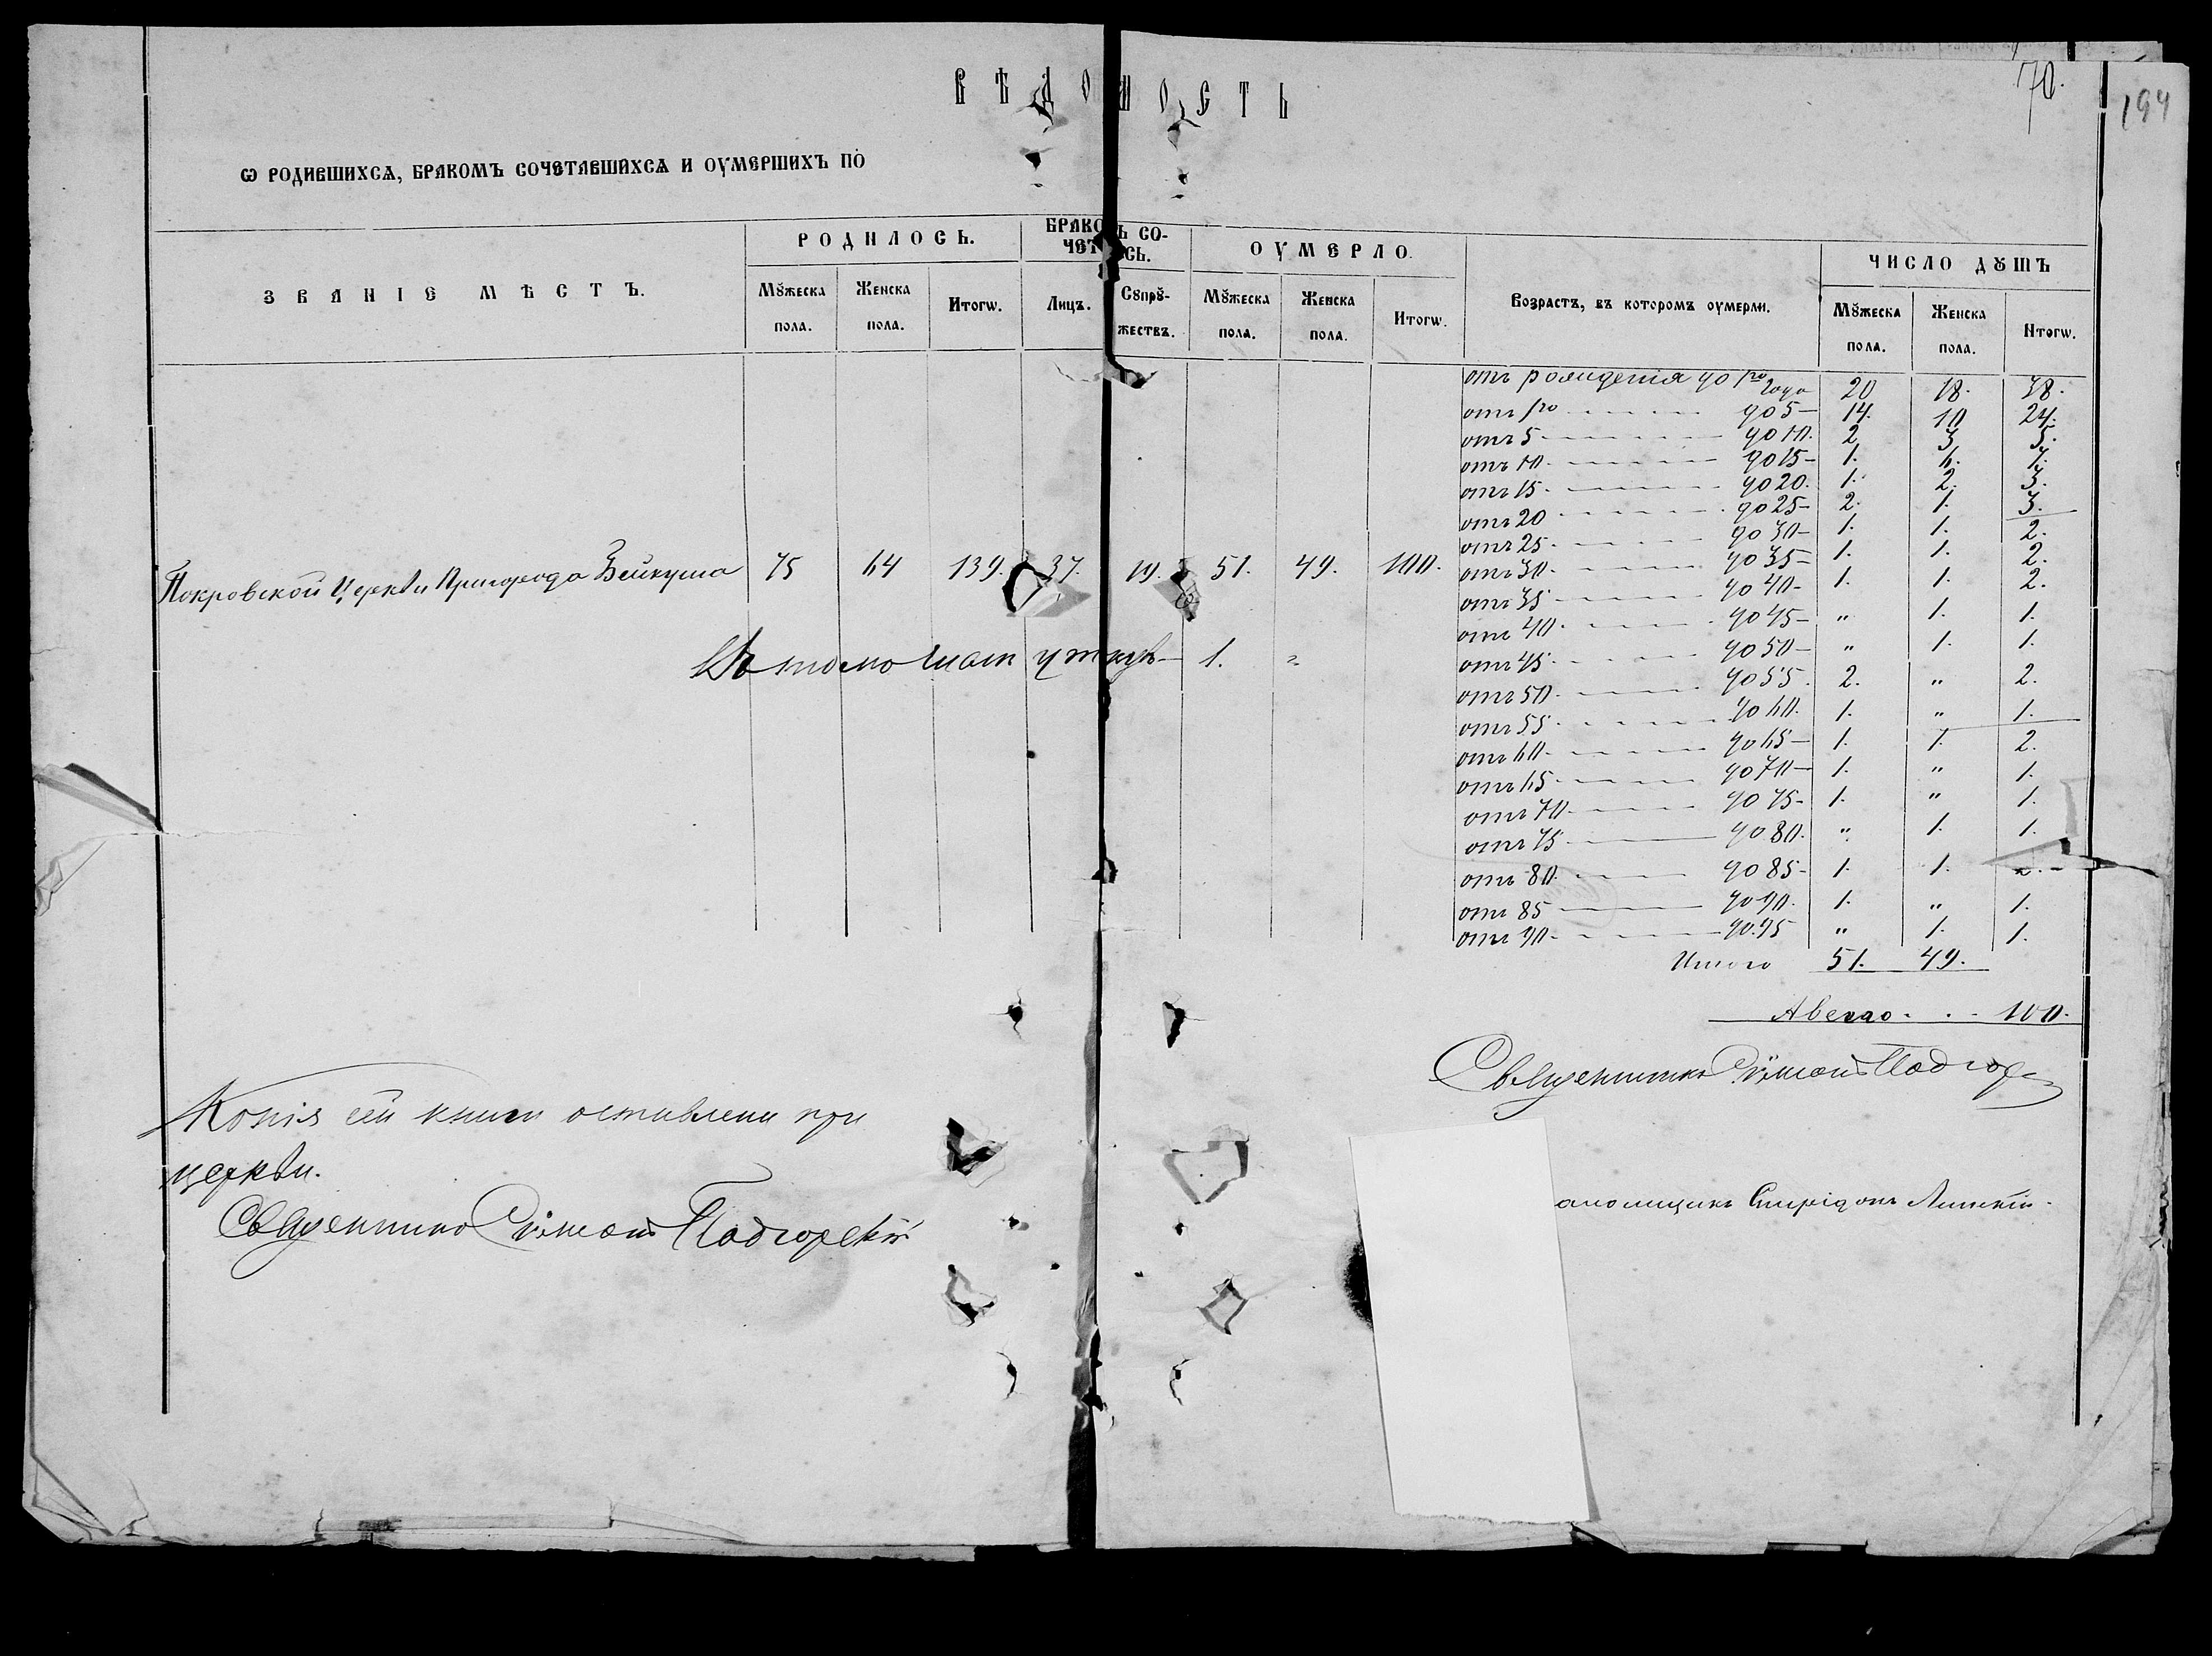 ВѢДОМОСТЬ
70.
194
Ѡ РОДИВШИХСѦ, БРАКОМЪ СОЧЕТАВШИХСѦ И ОУМЕРШИХЪ ПО
ЗВАНІЕ МѢСТЪ.
РОДИЛОСЬ.
БРАКОМЪ СО-
ЧЕТ СЬ.
ОУМЕРЛО.
Возрастъ, въ которомъ оумерли.
ЧИСЛО ДꙊШЪ
Мꙋжеска пола.
Женска пола.
Итогѡ.
Лицъ.
Сꙋпрꙋ-
жествъ.
Мꙋжеска пола.
Женска пола.
Итогѡ.
Мꙋжеска пола.
Женска пола.
Итогѡ.
Покровской Церкви Пригорода 75 64 139. 37. 19. 51. 49. 100.
Въ томъ числѣ 1. "
отъ рожденія до 1го года 20 18. 38.
отъ 1го до 5 14. 10 24.
отъ 5 до 10. 2 3 5.
отъ 10. до 15 1. 6. 7.
отъ 15. до 20. 1. 2. 3.
отъ 20 до 25 2. 1. 3.
отъ 25. до 30 1. 1. 2.
отъ 30. до 35 1. 1. 2.
отъ 35 до 40 1. 1. 2.
отъ 40. до 45 " 1. 1.
отъ 45. до 50 " 1. 1.
отъ 50. до 55. 2. " 2.
отъ 55. до 60. 1. " 1.
отъ 60. до 65 1. 1. 2.
отъ 65. до 70 1. " 1.
отъ 70. до 75 1. " 1.
отъ 75 до 80. " 1. 1.
отъ 80. до 85 1. 1. 2.
отъ 85 до 90. 1. " 1.
отъ 90. до 95 " 1. 1.
Итого 51. 49.
А всего 100.
Священникъ Сѵмеонъ Подгор
Копія сей книги оставлена при
церкви.
Священникъ Сѵмеонъ Подгорскій
аломщикъ Спиридонъ